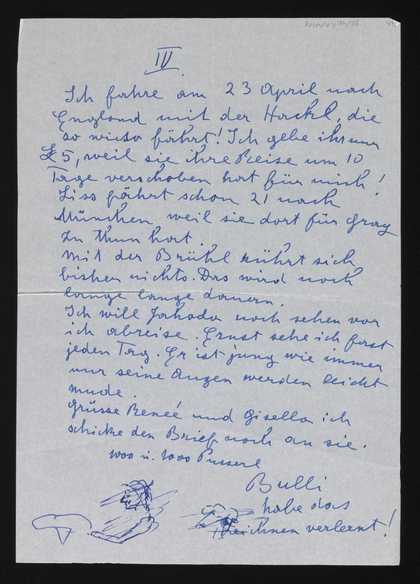 IV.
Ich fahre am 23 April nach
England mit der Hackl, die
so wieso fährt! Ich gebe ihr nur
£ 5, weil sie ihre Reise um 10
Tage verschoben hat für mich!
Liss fährt schon 21 nach
München weil sie dort für Gray
zu thun hat.
Mit der Brühl rührt sich
bisher nichts. Das wird noch
lange lange dauern.
Ich will Jahoda noch sehen vor
ich abreise. Ernst sehe ich fast
jeden Tag. Er ist jung wie immer
nur seine Augen werden leicht
müde.
Grüsse Reneé und Gisella ich
schicke den Brief noch an sie.
1000 u. 1000 Pusserl
Bulli
habe das
Zeichnen verlernt!